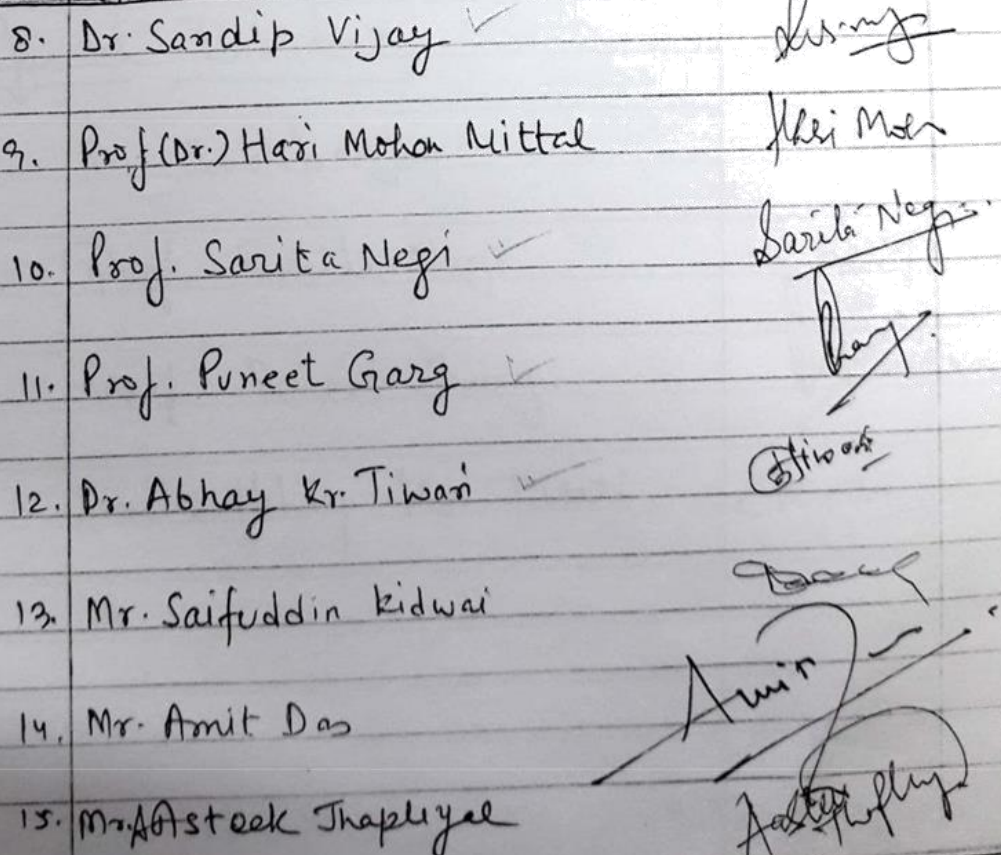 8. Dr. Sandip Vijay
9. Prof (Dr.) Hari Mohan Mittal Hari Moh
10. Prof. Sarita Negi Sarita Negi
11. Prof. Puneet Garg
12. Dr. Abhay Kr. Tiwari
13. Mr. Saifuddin Kidwai
14. Mr. Amit Das Amit
15. Mr. Asteek Thapliyal